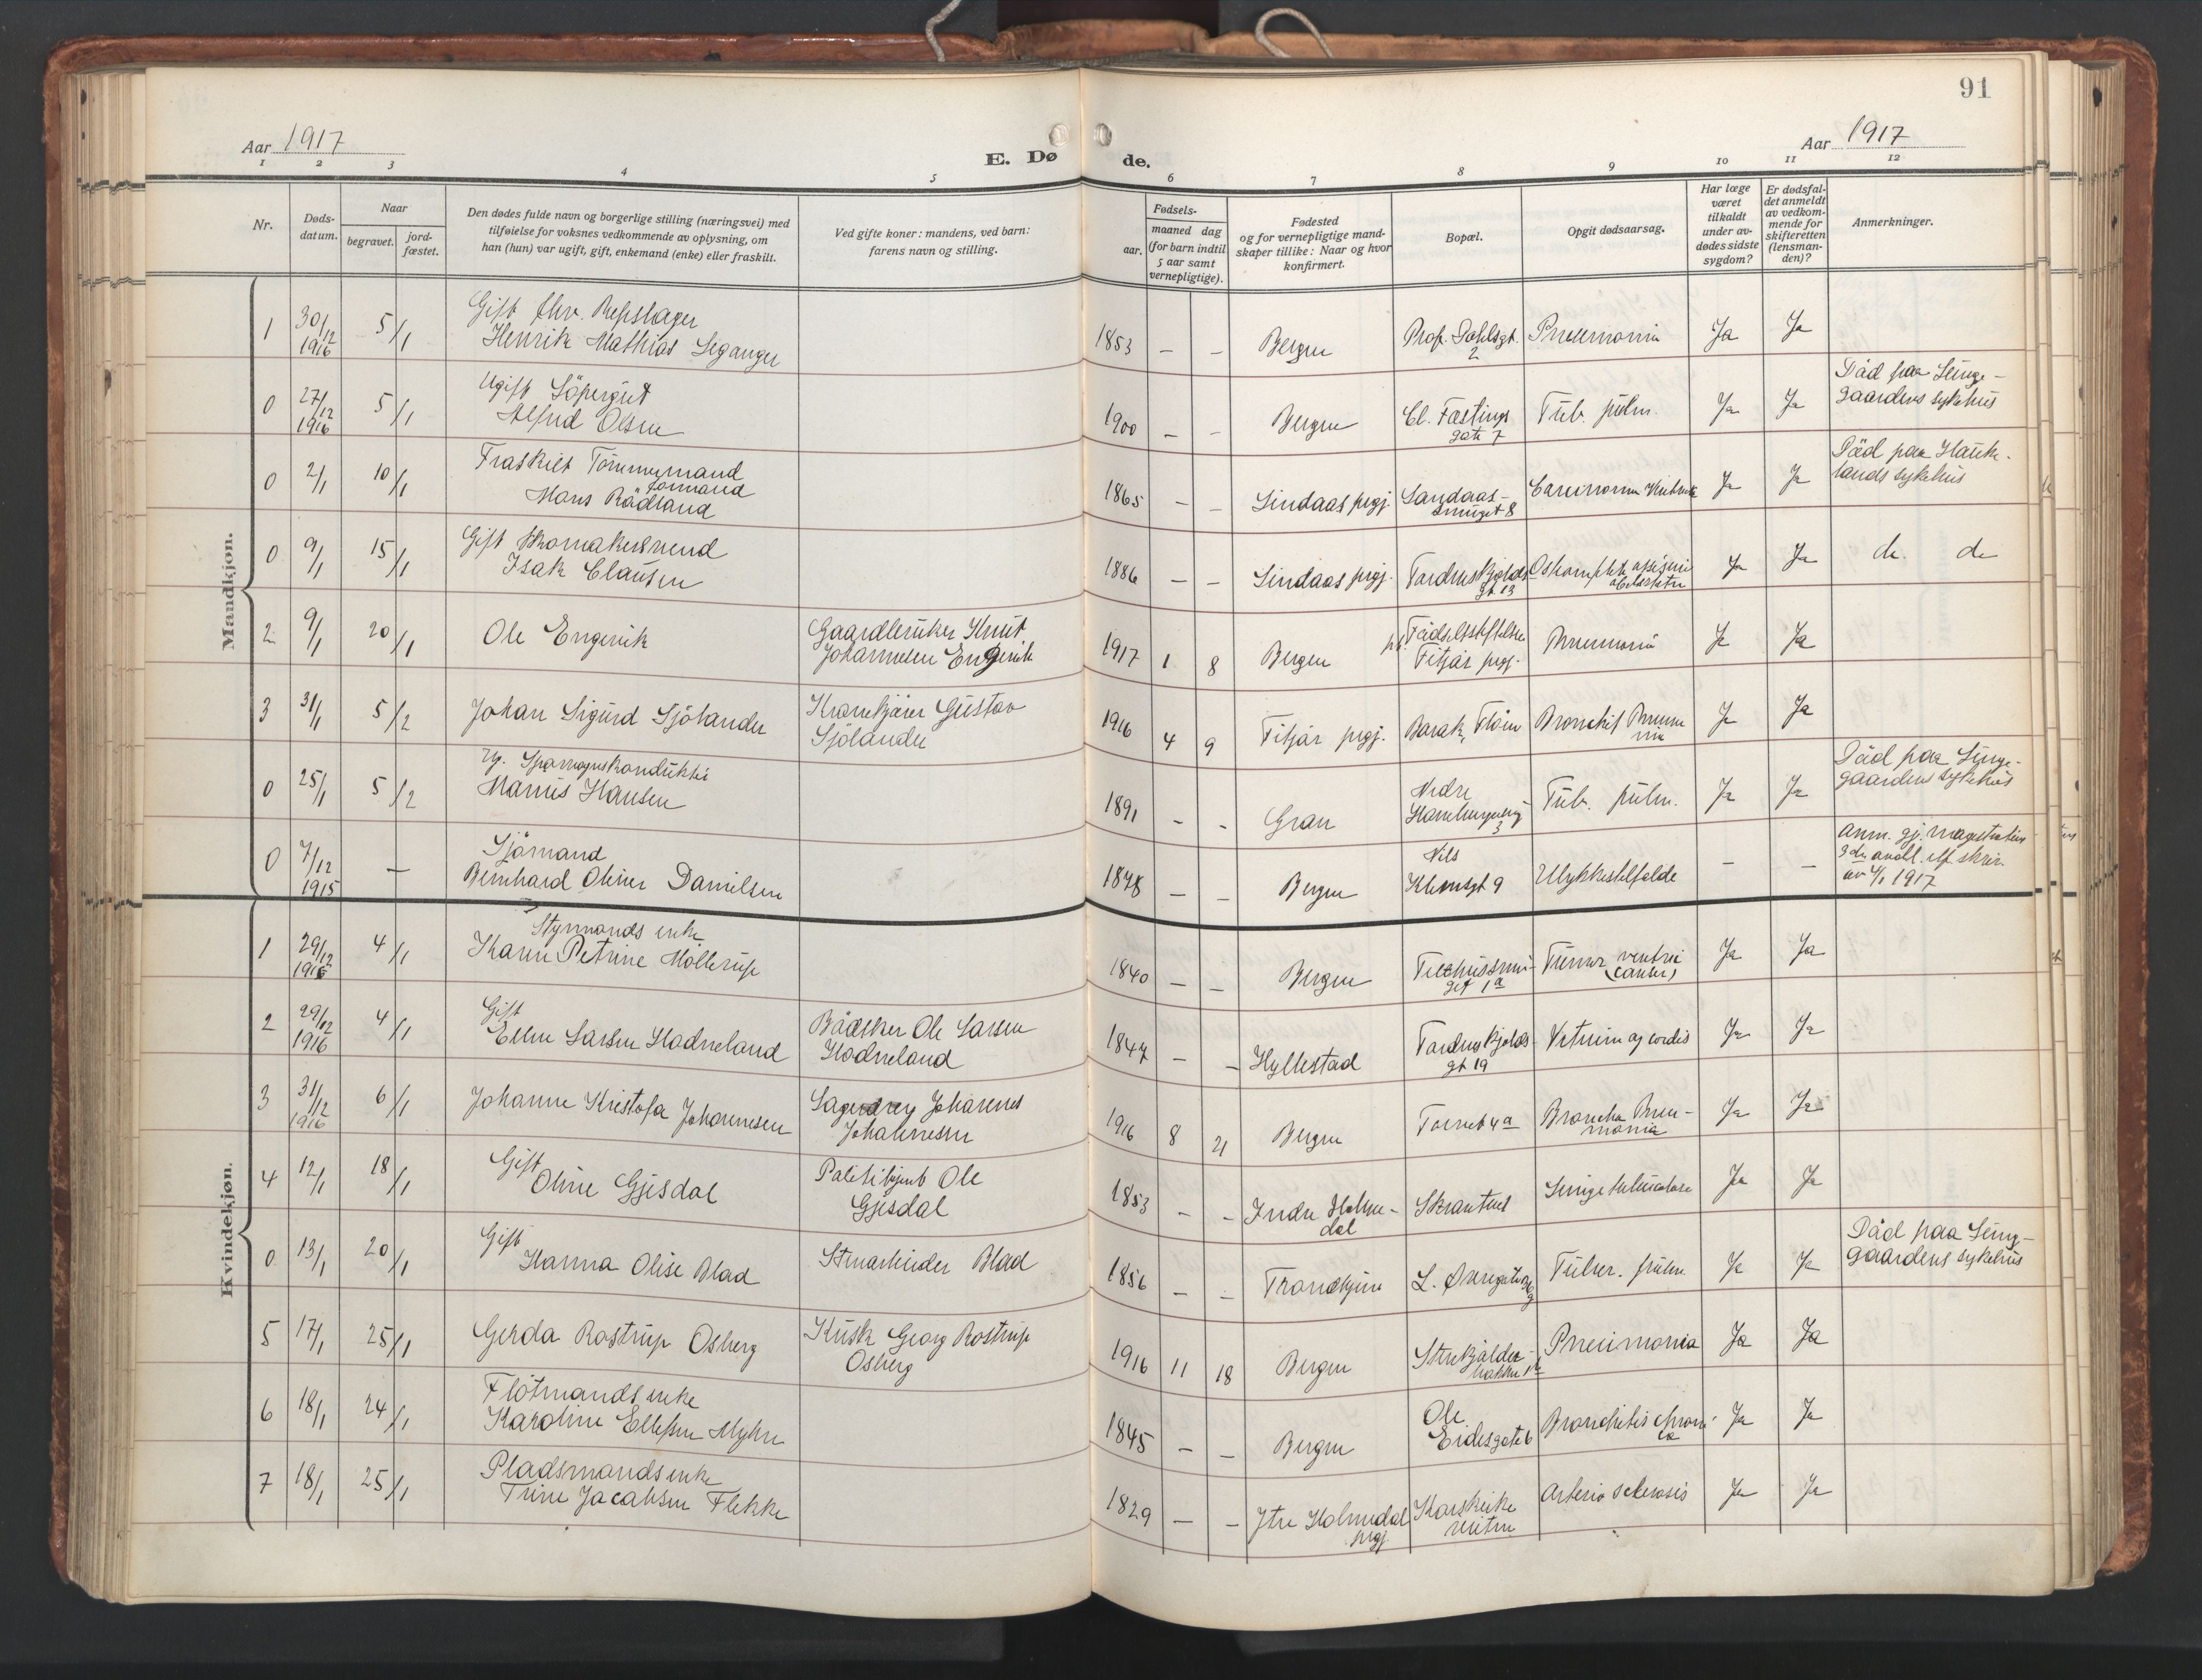 91
Aar 1917
E. Dø
de.
Aar 1917
1 2 3 4 5 6 7 8 9 10 11 12
Nr.
Døds-
datum.
Naar
begravet.
jord-
fæstet.
Den dødes fulde navn og borgerlige stilling (næringsvei) med
tilføielse for voksnes vedkommende av oplysning, om
han (hun) var ugift, gift, enkemand (enke) eller fraskilt.
Ved gifte koner: mandens, ved barn:
farens navn og stilling.
Fødsels-
aar.
maaned dag
(for barn indtil
5 aar samt
vernepligtige).
Fødested
og for vernepligtige mand-
skaper tillike: Naar og hvor
konfirmert.
Bopæl.
Opgit dødsaarsag.
Har læge
været
tilkaldt
under av-
dødes sidste
sygdom?
Er dødsfal-
det anmeldt
av vedkom-
mende for
skifteretten
(lensman-
den)?
Anmerkninger.
Mandkjøn.
1 30/12 1916 5/1
Gift fhv. Repslager
Henrik Mathias Leganger
1853 – – Bergen
Prof. Dahlsgt.
2
Pneumonia Ja Ja
0 27/12 1916 5/1
Ugift Löpergut
Alfred Olsen
1900 – – Bergen
Cl. Fastings
gate 7
Tub. pulm. Ja Ja
Död paa Lunge-
gaardens sykehus
0 2/1 10/1
Fraskilt Tömmermand
formand
Hans Rädland
1865 – – Lindaas prgj.
Landaas-
smuget 8
Carcinoma Ja Ja
Död paa Hauke-
lands sykehus
0 9/1 15/1
Gift Skomakersvend
Isak Clausen
1886 – – Lindaas prgj.
Tordenskjolds
gt. 13
Ja Ja do do
2 9/1 20/1
Ole Engevik
Gaardbruker Knut
Johannesen Engevik
1917 1 8 Bergen
Födselsstiftelse
Fitjar prgj.
Pneumoni Ja Ja
3 31/1 5/2
Johan Sigurd Sjölander
Kranekjörer Gustav
Sjölander
1916 4 9 Fitjar prgj. Barak, Flöen
Bronchit Pneumo
nia
Ja Ja
0 25/1 5/2
Ug. Sporvognskonduktör
Marius Hansen
1891 – – Gran
Nedre
Hamburgervei
3
Tub. pulm. Ja Ja
Död paa Lunge-
gaardens sykehus
0 7/12 1915 –
Sjömand
Bernhard Oliver Danielsen
1878 – – Bergen
Nils
Klimsgt 9
Ulykkestilfælde – –
Anm. gj. magistratens
3die avdl. ifl. skriv.
av 4/1 1917
Kvindekjøn.
1 29/12 1916 4/1
Styrmands enke
Karen Petrine Möllerup
1840 – – Bergen
Tugthussmu-
get 1a
Tumor ventric
(cancer)
Ja Ja
2 29/12 1916 4/1
Gift
Ellen Larsen Hadneland
Bödker Ole Larsen
Hadneland
1847 – – Hyllestad
Tordenskjolds
gt 19
Vitium og cordis Ja Ja
3 31/12 1916 6/1
Johanne Kristofa Johannesen
Johannes
Johannesen
1916 8 21 Bergen Tornet 4a
Broncho Pneu-
monia
Ja Ja
4 12/1 18/1
Gift
Oline Gjesdal
Politibetjent Ole
Gjesdal
1853 – –
Indre Holme-
dal
Skrantveit Lungetuberculose Ja Ja
0 13/1 20/1
Gift
Hanna Olise Blad
Stenarbeider Blad
1856 – – Trondhjem
L. Övregate
Tuber. pulm. Ja Ja
Död paa Lung-
gaardens sykehus
5 17/1 25/1
Gerda Rostrup Osberg
Kusk Georg Rostrup
Osberg
1916 11 18 Bergen
Stenkjelder-
bakken
Pneumonia Ja Ja
6 18/1 24/1
Flötmands enke
Karoline Ellefsen Myhre
1845 – – Bergen
Ole
Eidesgate 6
Bronchitis chroni-
ca
Ja Ja
7 18/1 25/1
Pladsmands enke
Trine Jacobsen Flekke
1829 – –
Ytre Holmedal
prgj.
Arterio sclerosis Ja Ja